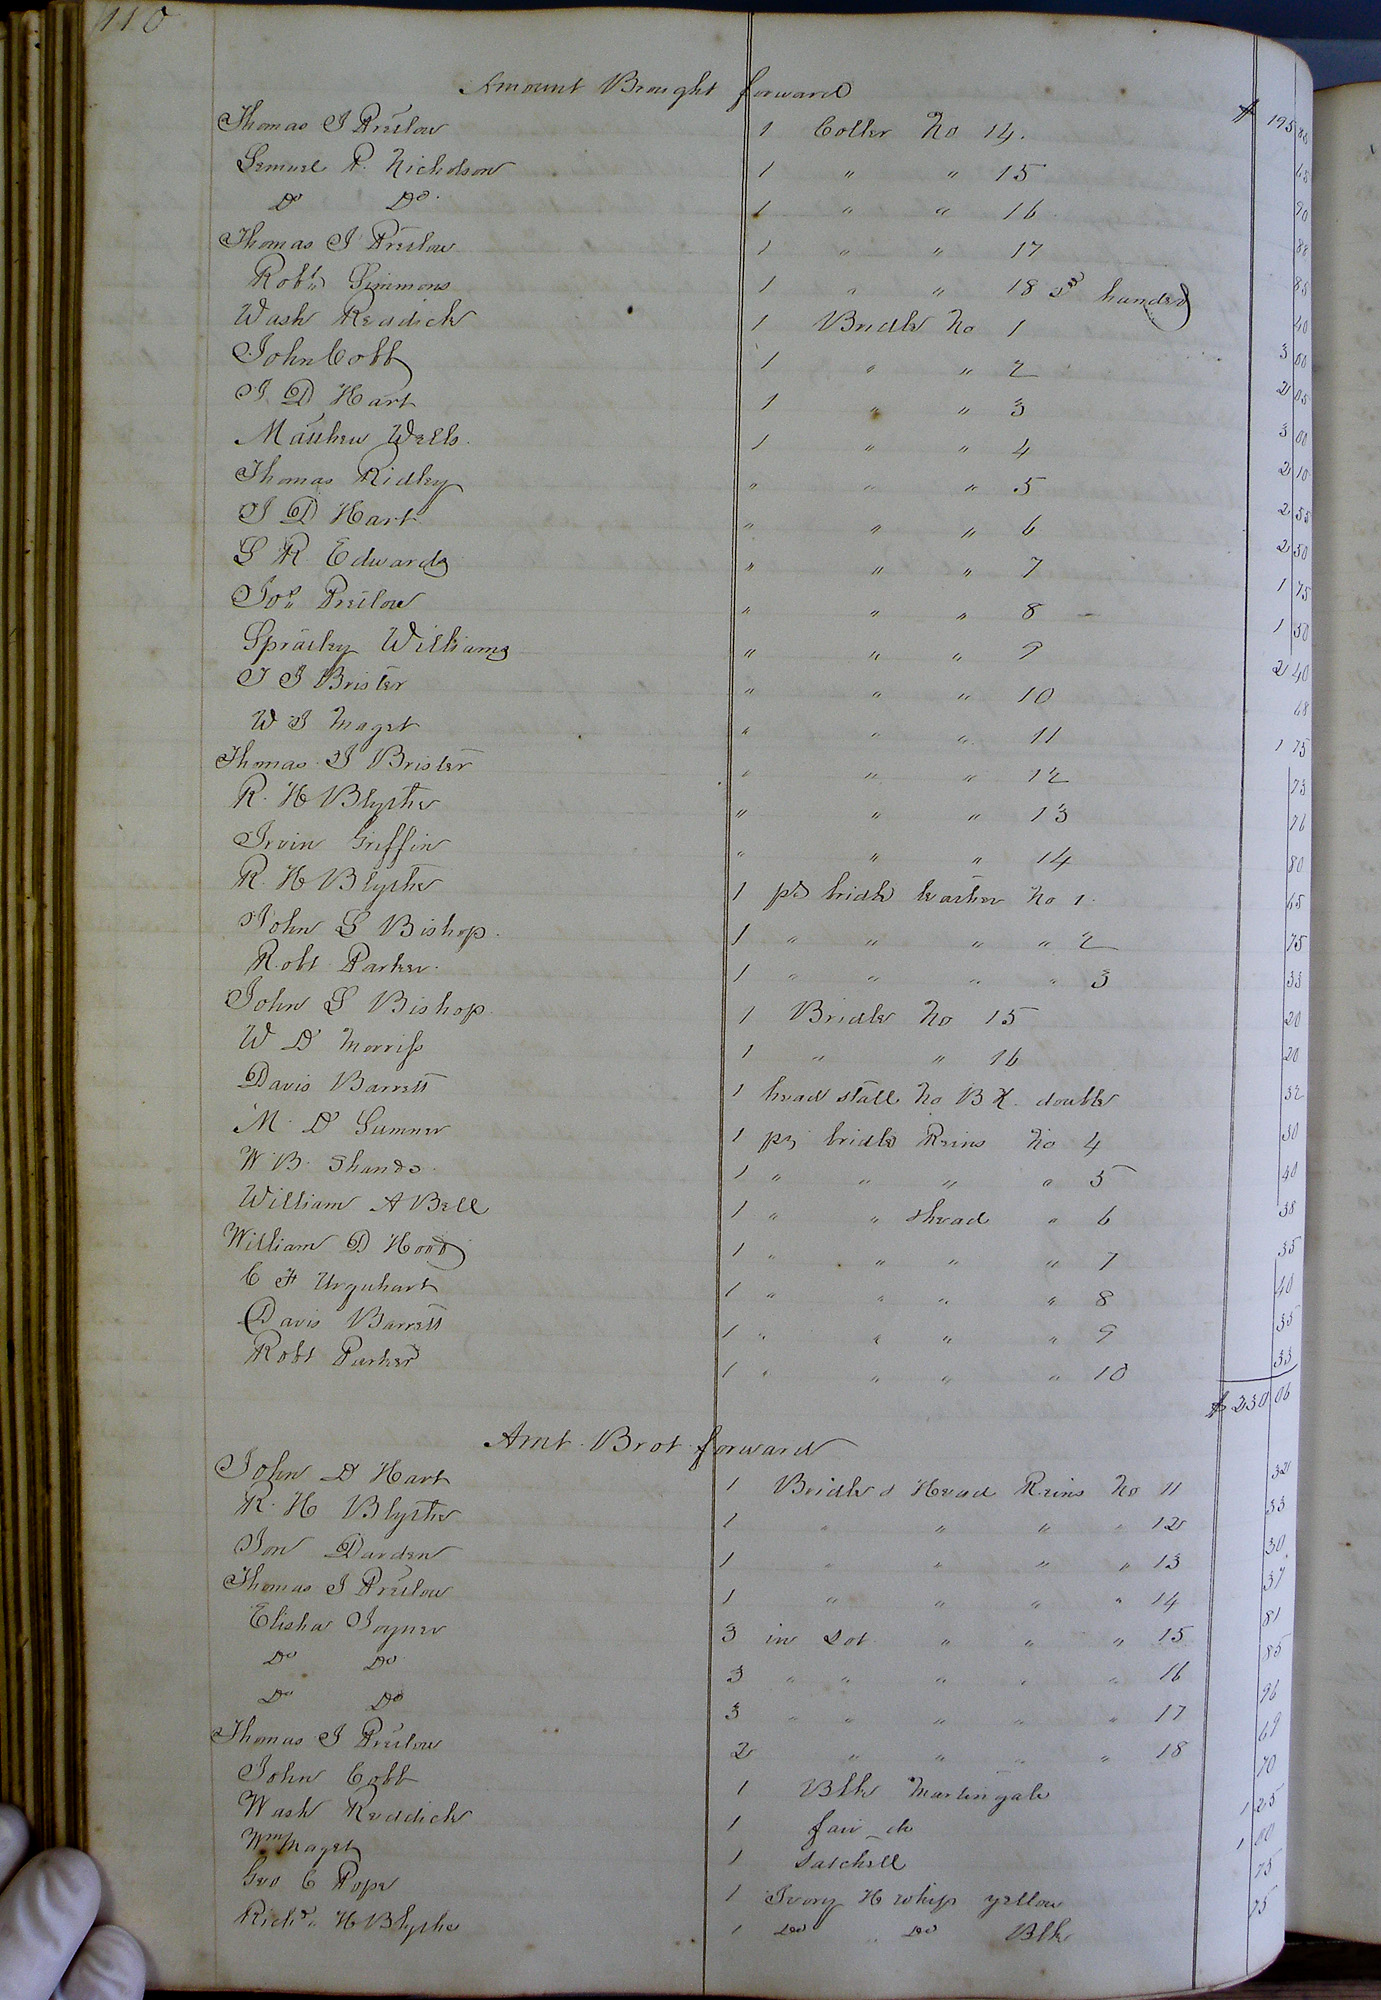 110
Amount Brought forward $ 195 83
Thomas J Pretlow 1 Coller No 14. 65
Samuel P. Nicholson 1 " " 15 90
Do Do. 1 " " 16 88
Thomas J Pretlow 1 " " 17 85
Robt Simmons 1 " " 18 2d handed 40
Wash Reddick 1 Bridle No 1 3 00
John Cobb 1 " " 2 2 05
J. D Hart 1 " " 3 3 00
Matthew Wells. 1 " " 4 2 10
Thomas Ridley " " " 5 2 55
J D Hart " " " 6 2 50
S R Edwards " " " 7 1 75
Jos Pretlow " " " 8 1 50
Spratley Williams " " " 9 2 40
T J Brister " " " 10 68
W J Maget " " " 11 1 75
Thomas J Brister " " " 12 73
R. H Blythe " " " 13 76
Irvin Griffin " " " 14 80
R. H Blythe 1 pr bridle leather No 1. 65
John S Bishop. 1 " " " " 2 75
Robt Parker. 1 " " " " 3 33
John S Bishop. 1 Bridle No 15 20
W D Morriss 1 " " 16 20
Davis Barrett 1 head stall No BX. double 32
M. D Sumner 1 pr bridle Reins No 4 30
W. B. Shands. 1 " " " " 5 40
William A Bell 1 " " head " 6 38
William D Hood 1 " " " " 7 35
C F Urquhart 1 " " " " 8 40
Davis Barrett 1 " " " " 9 35
Robt Parker 1 " " " " 10 33
$ 230 06
Amt. Brot. forward
John D Hart 1 Bridle & Head Reins No 11 32
R. H Blythe 1 " " " " 12 33
Jon Darden 1 " " " " 13 30
Thomas J Pretlow 1 " " " " 14 37
Elisha Joyner 3 in Lot " " " 15 81
Do Do 3 " " " " " 16 85
Do Do 3 " " " " " 17 96
Thomas J Pretlow 2 " " " " 18 69
John Cobb 1 Blk Martingale 70
Wash Reddick 1 fair do 1 25
Wm Maget 1 Satchell 1 00
Geo C Pope 1 Ivory H whip yellow 75
Richd H Blythe 1 Do Do Blk 75